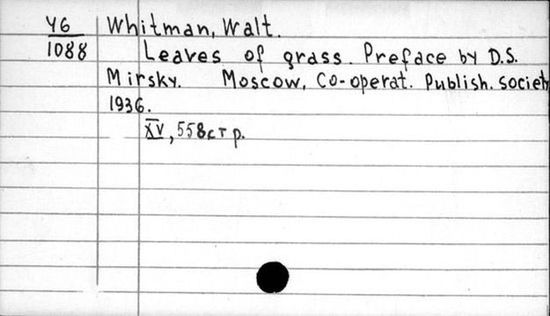 У6 Whitman, Walt.
1088 Leaves of grass. Preface by D.S.
Mirsky. Moscow, Co-operat. Publish. societ
1936.
XV, 558 стр.